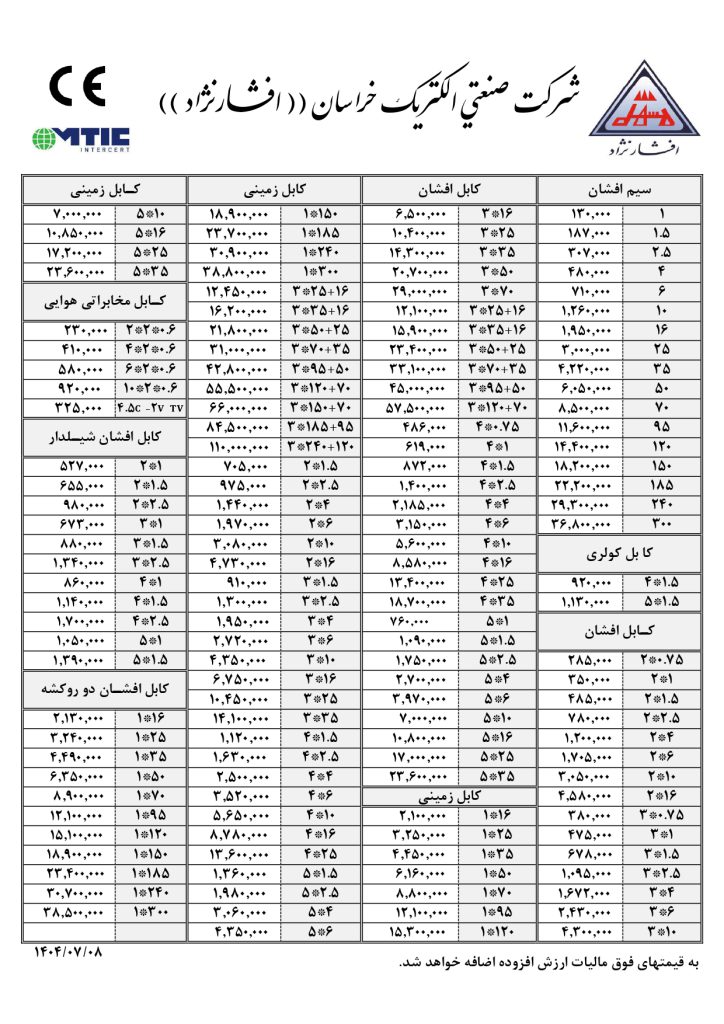 CE
MTIC
INTERCERT
شرکت صنعتي الکتریک خراسان (( افشارنژاد ))
افشارنژاد
سیم افشان
۱ ۱۳۰,۰۰۰
۱.۵ ۱۸۷,۰۰۰
۲.۵ ۳۰۷,۰۰۰
۴ ۴۸۰,۰۰۰
۶ ۷۱۰,۰۰۰
۱۰ ۱,۲۶۰,۰۰۰
۱۶ ۱,۹۵۰,۰۰۰
۲۵ ۳,۰۰۰,۰۰۰
۳۵ ۴,۲۲۰,۰۰۰
۵۰ ۶,۰۵۰,۰۰۰
۷۰ ۸,۵۰۰,۰۰۰
۹۵ ۱۱,۶۰۰,۰۰۰
۱۲۰ ۱۴,۴۰۰,۰۰۰
۱۵۰ ۱۸,۲۰۰,۰۰۰
۱۸۵ ۲۲,۲۰۰,۰۰۰
۲۴۰ ۲۹,۳۰۰,۰۰۰
۳۰۰ ۳۶,۸۰۰,۰۰۰
کا بل کولری
۴*۱.۵ ۹۲۰,۰۰۰
۵*۱.۵ ۱,۱۳۰,۰۰۰
کـابل افشان
۲*۰.۷۵ ۲۸۵,۰۰۰
۲*۱ ۳۵۰,۰۰۰
۲*۱.۵ ۴۸۵,۰۰۰
۲*۲.۵ ۷۸۰,۰۰۰
۲*۴ ۱,۲۰۰,۰۰۰
۲*۶ ۱,۷۰۵,۰۰۰
۲*۱۰ ۳,۰۵۰,۰۰۰
۲*۱۶ ۴,۵۸۰,۰۰۰
۳*۰.۷۵ ۳۸۰,۰۰۰
۳*۱ ۴۷۵,۰۰۰
۳*۱.۵ ۶۷۸,۰۰۰
۳*۲.۵ ۱,۰۹۵,۰۰۰
۳*۴ ۱,۶۷۲,۰۰۰
۳*۶ ۲,۴۳۰,۰۰۰
۳*۱۰ ۴,۳۰۰,۰۰۰
کابل افشان
۳*۱۶ ۶,۵۰۰,۰۰۰
۳*۲۵ ۱۰,۴۰۰,۰۰۰
۳*۳۵ ۱۴,۳۰۰,۰۰۰
۳*۵۰ ۲۰,۷۰۰,۰۰۰
۳*۷۰ ۲۹,۰۰۰,۰۰۰
۳*۲۵+۱۶ ۱۲,۱۰۰,۰۰۰
۳*۳۵+۱۶ ۱۵,۹۰۰,۰۰۰
۳*۵۰+۲۵ ۲۳,۴۰۰,۰۰۰
۳*۷۰+۳۵ ۳۳,۱۰۰,۰۰۰
۳*۹۵+۵۰ ۴۵,۰۰۰,۰۰۰
۳*۱۲۰+۷۰ ۵۷,۵۰۰,۰۰۰
۴*۰.۷۵ ۴۸۶,۰۰۰
۴*۱ ۶۱۹,۰۰۰
۴*۱.۵ ۸۷۲,۰۰۰
۴*۲.۵ ۱,۴۰۰,۰۰۰
۴*۴ ۲,۱۸۵,۰۰۰
۴*۶ ۳,۱۵۰,۰۰۰
۴*۱۰ ۵,۶۰۰,۰۰۰
۴*۱۶ ۸,۵۸۰,۰۰۰
۴*۲۵ ۱۳,۴۰۰,۰۰۰
۴*۳۵ ۱۸,۷۰۰,۰۰۰
۵*۱ ۷۶۰.۰۰۰
۵*۱.۵ ۱,۰۹۰,۰۰۰
۵*۲.۵ ۱,۷۵۰,۰۰۰
۵*۴ ۲,۷۰۰,۰۰۰
۵*۶ ۳,۹۷۰,۰۰۰
۵*۱۰ ۷,۰۰۰,۰۰۰
۵*۱۶ ۱۰,۸۰۰,۰۰۰
۵*۲۵ ۱۷,۰۰۰,۰۰۰
۵*۳۵ ۲۳,۶۰۰,۰۰۰
کابل زمینی
۱*۱۶ ۲,۱۰۰,۰۰۰
۱*۲۵ ۳,۲۵۰,۰۰۰
۱*۳۵ ۴,۴۵۰,۰۰۰
۱*۵۰ ۶,۱۶۰,۰۰۰
۱*۷۰ ۸,۸۰۰,۰۰۰
۱*۹۵ ۱۲,۱۰۰,۰۰۰
۱*۱۲۰ ۱۵,۳۰۰,۰۰۰
کابل زمینی
۱*۱۵۰ ۱۸,۹۰۰,۰۰۰
۱*۱۸۵ ۲۳,۷۰۰,۰۰۰
۱*۲۴۰ ۳۰,۹۰۰,۰۰۰
۱*۳۰۰ ۳۸,۸۰۰,۰۰۰
۳*۲۵+۱۶ ۱۲,۴۵۰,۰۰۰
۳*۳۵+۱۶ ۱۶,۲۰۰,۰۰۰
۳*۵۰+۲۵ ۲۱,۸۰۰,۰۰۰
۳*۷۰+۳۵ ۳۱,۰۰۰,۰۰۰
۳*۹۵+۵۰ ۴۲,۸۰۰,۰۰۰
۳*۱۲۰+۷۰ ۵۵,۵۰۰,۰۰۰
۳*۱۵۰+۷۰ ۶۶,۰۰۰,۰۰۰
۳*۱۸۵+۹۵ ۸۴,۵۰۰,۰۰۰
۳*۲۴۰+۱۲۰ ۱۱۰,۰۰۰,۰۰۰
۲*۱.۵ ۷۰۵,۰۰۰
۲*۲.۵ ۹۷۵,۰۰۰
۲*۴ ۱,۴۴۰,۰۰۰
۲*۶ ۱,۹۷۰,۰۰۰
۲*۱۰ ۳,۰۸۰,۰۰۰
۲*۱۶ ۴,۷۳۰,۰۰۰
۳*۱.۵ ۹۱۰,۰۰۰
۳*۲.۵ ۱,۳۰۰,۰۰۰
۳*۴ ۱,۹۵۰,۰۰۰
۳*۶ ۲,۷۲۰,۰۰۰
۳*۱۰ ۴,۳۵۰,۰۰۰
۳*۱۶ ۶,۷۵۰,۰۰۰
۳*۲۵ ۱۰,۴۵۰,۰۰۰
۳*۳۵ ۱۴,۱۰۰,۰۰۰
۴*۱.۵ ۱,۱۲۰,۰۰۰
۴*۲.۵ ۱,۶۳۰,۰۰۰
۴*۴ ۲,۵۰۰,۰۰۰
۴*۶ ۳,۵۲۰,۰۰۰
۴*۱۰ ۵,۶۵۰,۰۰۰
۴*۱۶ ۸,۷۸۰,۰۰۰
۴*۲۵ ۱۳,۶۰۰,۰۰۰
۵*۱.۵ ۱,۳۶۰,۰۰۰
۵*۲.۵ ۱,۹۸۰,۰۰۰
۵*۴ ۳,۰۶۰,۰۰۰
۵*۶ ۴,۳۵۰,۰۰۰
کـابل زمینی
۵*۱۰ ۷,۰۰۰,۰۰۰
۵*۱۶ ۱۰,۸۵۰,۰۰۰
۵*۲۵ ۱۷,۲۰۰,۰۰۰
۵*۳۵ ۲۳,۶۰۰,۰۰۰
کـابل مخابراتی هوایی
۲*۲*۰.۶ ۲۳۰,۰۰۰
۴*۲*۰.۶ ۴۱۰,۰۰۰
۶*۲*۰.۶ ۵۸۰,۰۰۰
۱۰*۲*۰.۶ ۹۲۰,۰۰۰
۴.۵C -۲V TV ۳۲۵,۰۰۰
کابل افشان شیـلدار
۲*۱ ۵۲۷,۰۰۰
۲*۱.۵ ۶۵۵,۰۰۰
۲*۲.۵ ۹۸۰,۰۰۰
۳*۱ ۶۷۳,۰۰۰
۳*۱.۵ ۸۸۰,۰۰۰
۳*۲.۵ ۱,۳۴۰,۰۰۰
۴*۱ ۸۶۰,۰۰۰
۴*۱.۵ ۱,۱۴۰,۰۰۰
۴*۲.۵ ۱,۷۰۰,۰۰۰
۵*۱ ۱,۰۵۰,۰۰۰
۵*۱.۵ ۱,۳۹۰,۰۰۰
کابل افشـان دو روکشه
۱*۱۶ ۲,۱۳۰,۰۰۰
۱*۲۵ ۳,۲۴۰,۰۰۰
۱*۳۵ ۴,۴۹۰,۰۰۰
۱*۵۰ ۶,۳۵۰,۰۰۰
۱*۷۰ ۸,۹۰۰,۰۰۰
۱*۹۵ ۱۲,۱۰۰,۰۰۰
۱*۱۲۰ ۱۵,۱۰۰,۰۰۰
۱*۱۵۰ ۱۸,۹۰۰,۰۰۰
۱*۱۸۵ ۲۳,۴۰۰,۰۰۰
۱*۲۴۰ ۳۰,۷۰۰,۰۰۰
۱*۳۰۰ ۳۸,۵۰۰,۰۰۰
به قیمتهای فوق مالیات ارزش افزوده اضافه خواهد شد.
۱۴۰۴/۰۷/۰۸